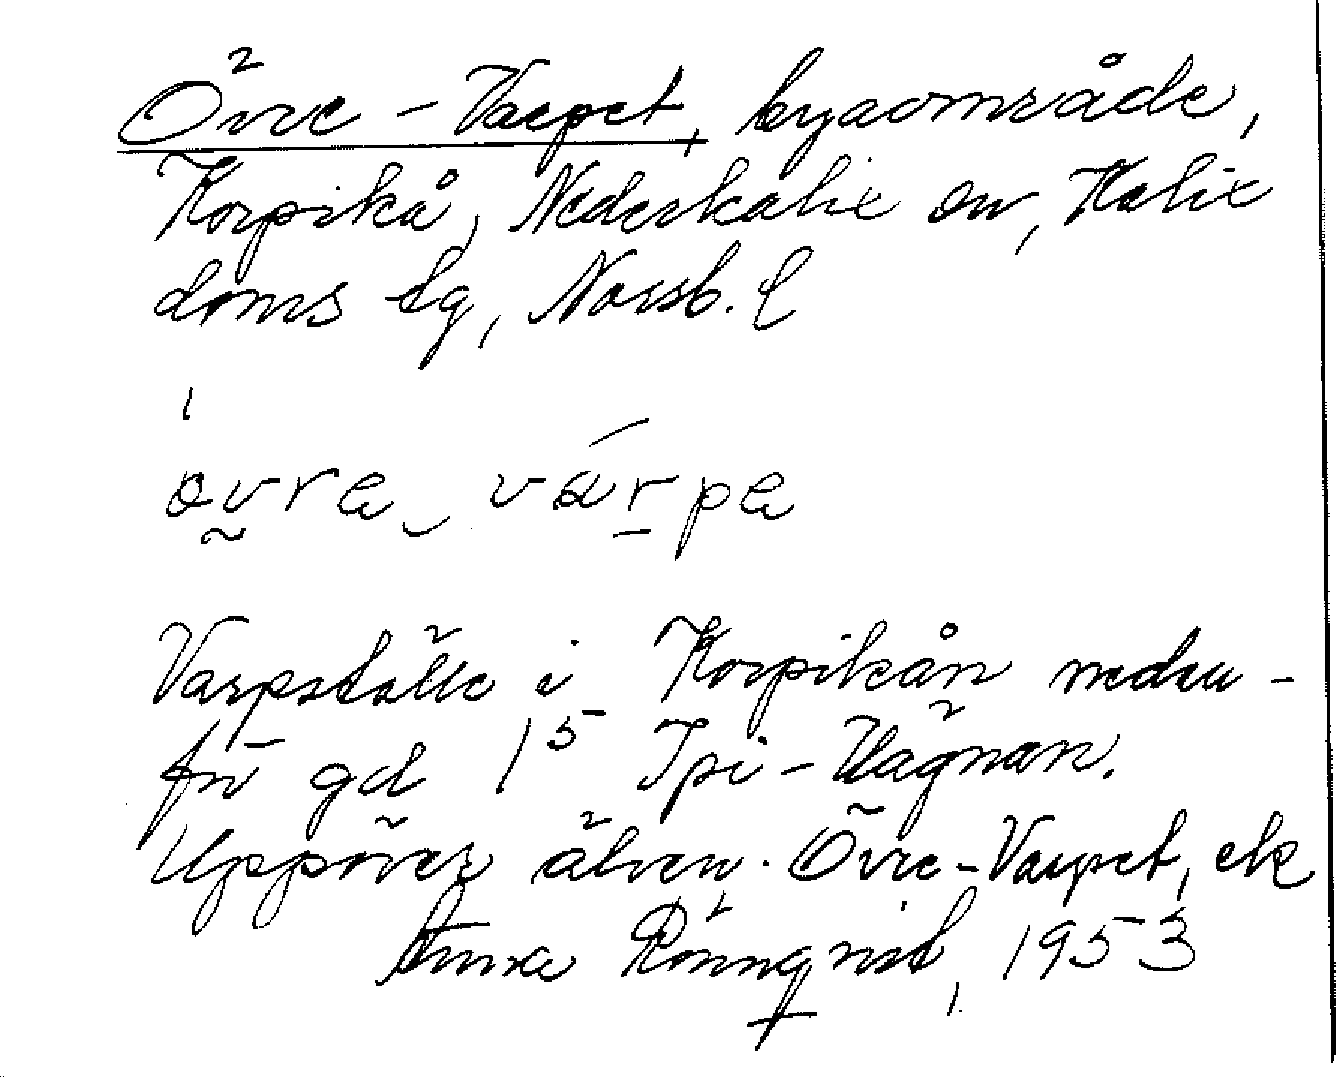 Övre-Varpet, byaområde,
Korpikå, Nederkalix sn, Kalix
doms lg, Norrb. l
övra varpa
Varpställe i Korpikån nedan-
för gd 1⁵ Ipi-Hägnan.
Uppöver älven. Övre-Varpet, ek
Anna Rönnqvist, 1953